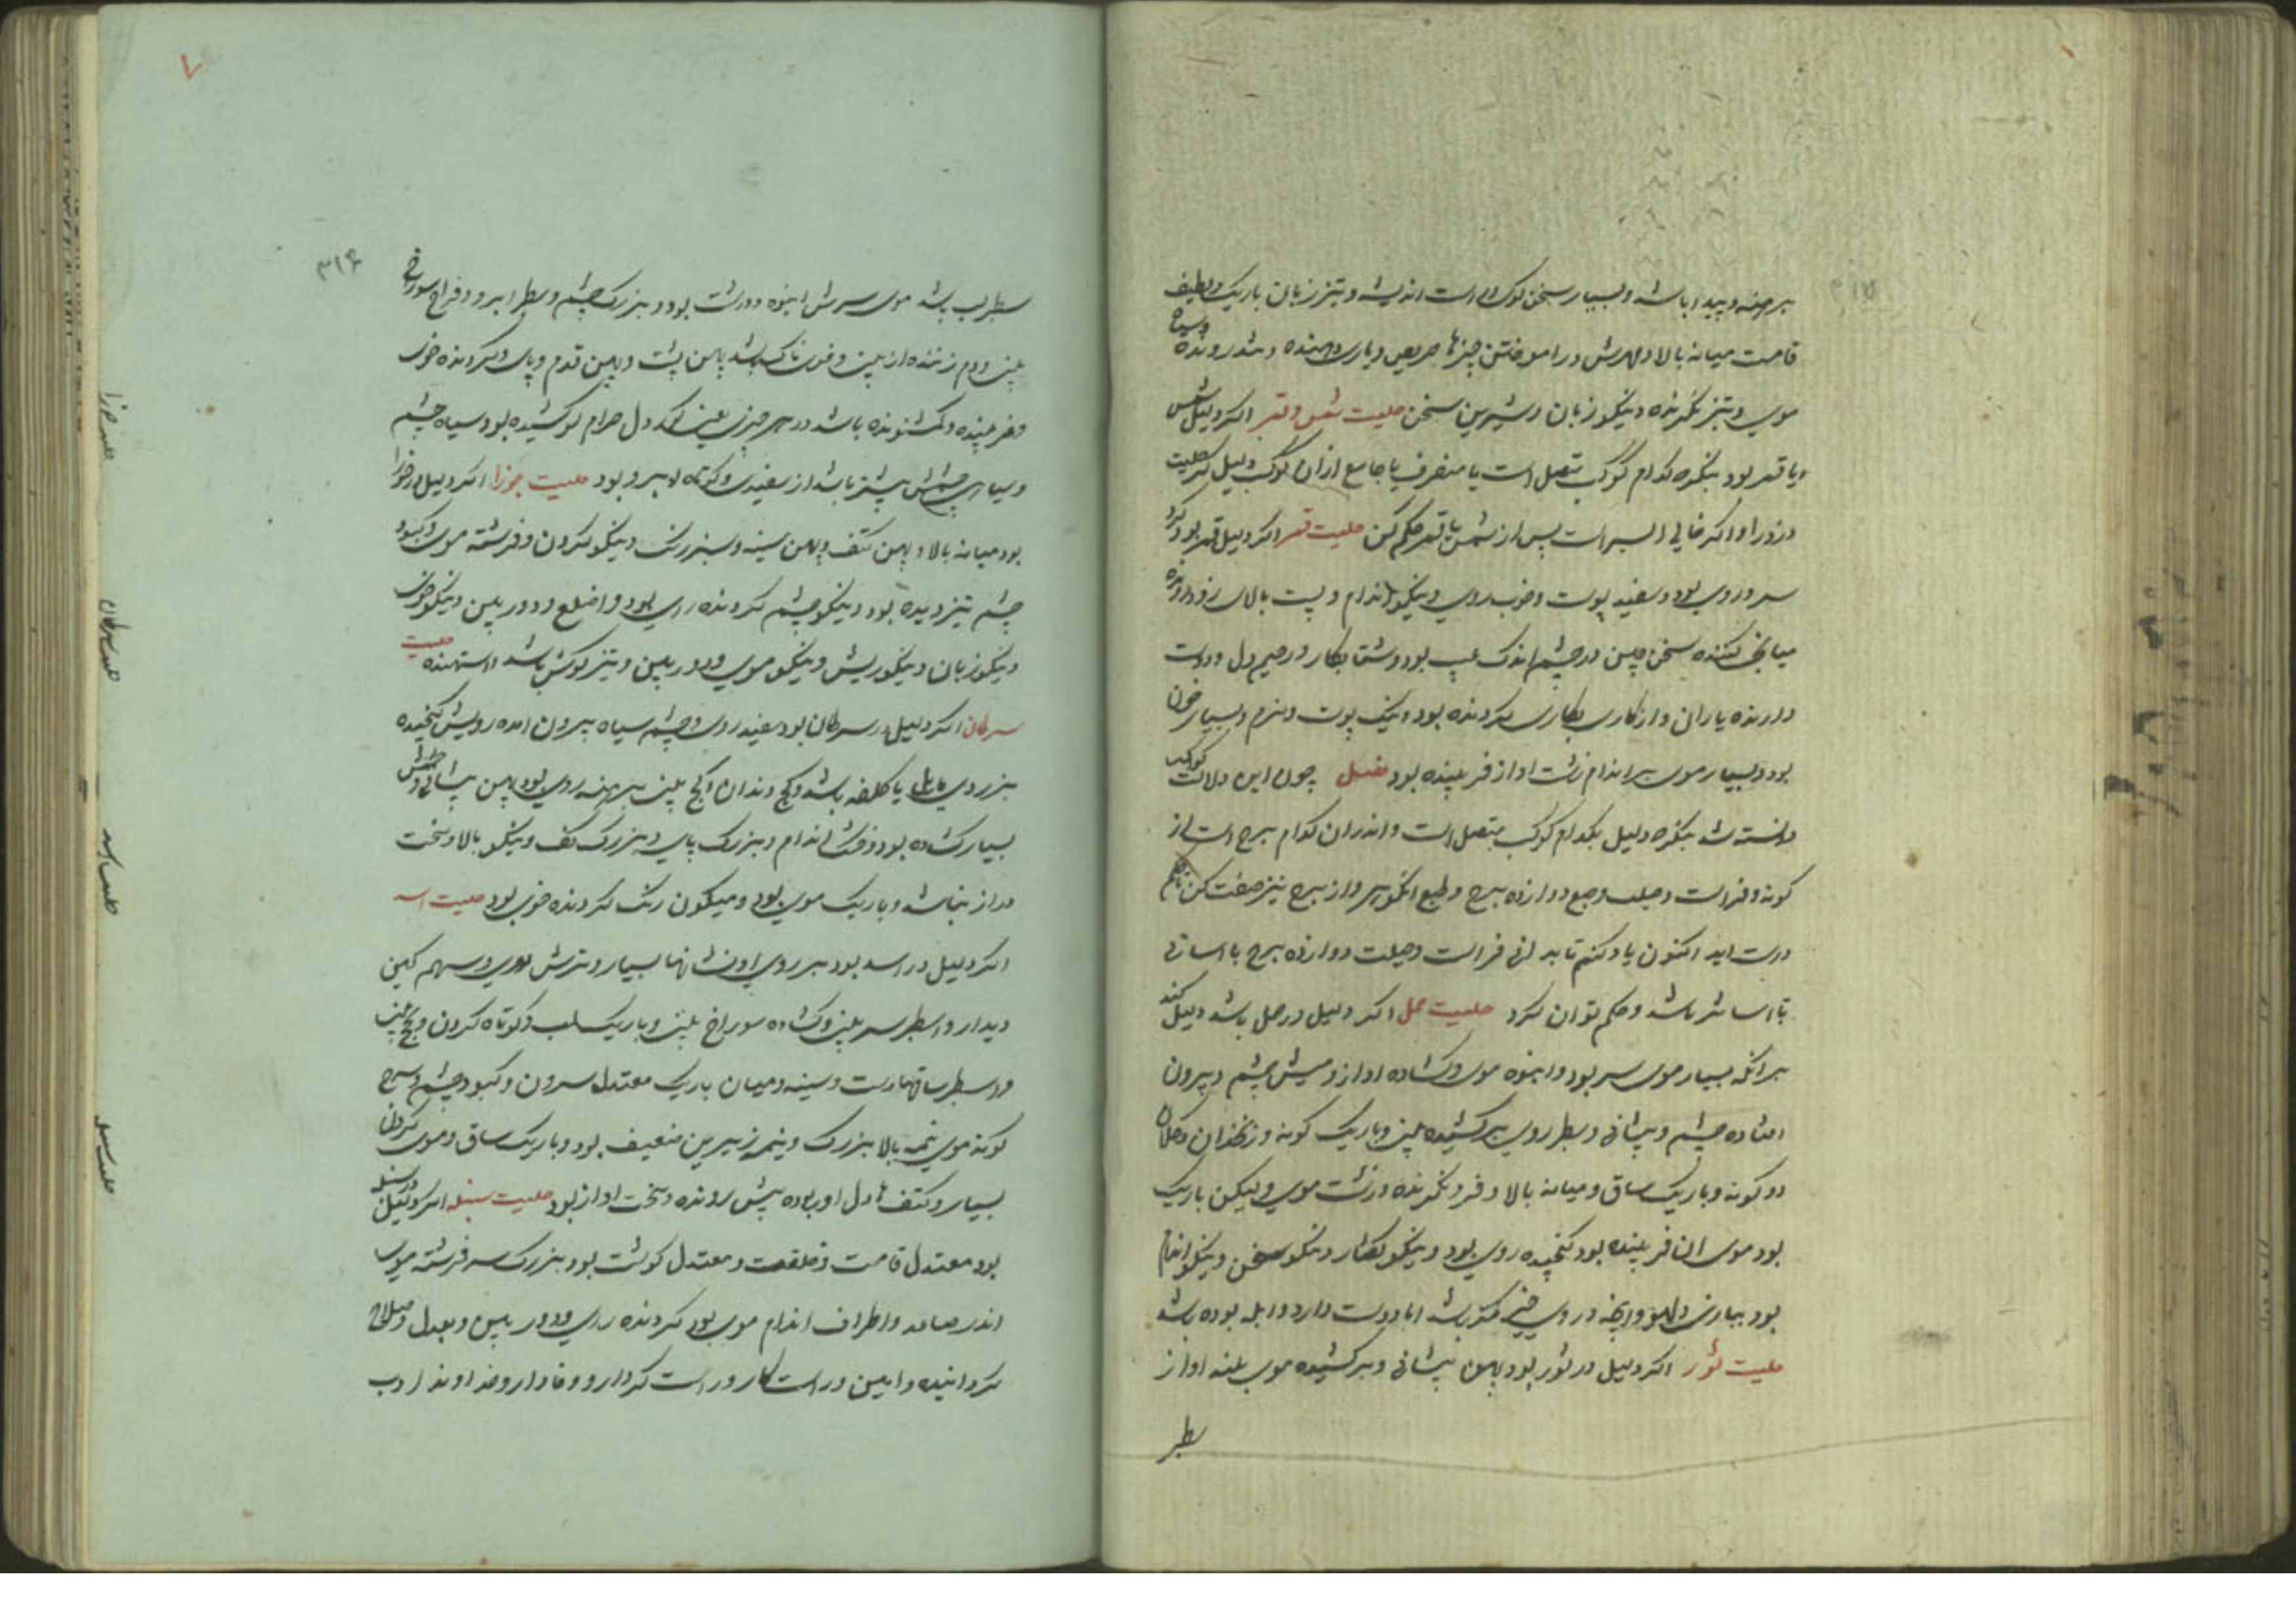 برهنه و پیدا باشد و بسیار سخن کوی راست اندیشه و تیز زبان باریک و لطیف
قامت میانه بالا و مهرش در اموختن چیزها حریص و یاری دهنده و تندرونده و سیاه
موی و تیز نکرنده و نیکو زبان و شیرین سخن حلیت شمس و قمر اکر دلیل شمس
ویا قمر بود بنکر که کدام کوکب متصل است یا منصرف یا جامع از ان کوکب دلیل کیر حلیت
و زور او اکر خالی السیر است پس از شمس یا قمر حکم کن حلیت قمر اکر دلیل قمر بود کرد
سر و روی بود و سفید پوست و خوب روی و نیکو اندام و پست بالای زود رونده
میانجی کننده سخن چین در چشم اندک عیب بود و شتابکار و رحیم دل و دوست
دارنده یاران و از کاری بکاری کردنده بود و تنک پوست و نرم و بسیار خون
بود و بسیار موی بر اندام زشت اواز فریبنده بود فصل چون این دلالت کوکب
دانسته شد بنکر که دلیل بکدام کوکب متصل است و اندران کدام برج است از
کونه و فراست و حلیت و جمع دوازده برج و طبع انکو سپر و از برج نیز صفت کن تا حکم
درست اید اکنون یاد کنم تا بدانی فراست و حلیت دوازده برج با اسانی
تا اسانتر باشد و حکم توان کرد حلیت حمل اکر دلیل در حمل باشد دلیل کند
برانکه بسیار موی سر بود و انبوه موی و کشاده اواز و میش چشم و بیرون
افتاده چشم و پیشانی و سطبر روی برکشیده بینی و باریک کونه و زنخدان و کلان
دو کونه و باریک ساق و میانه بالا و فرو نکرنده و زشت موی و لیکن باریک
بود موی ان فریبنده بود کنجیده روی بود و نیکو کفتار و نیکو سخن و نیکو اندام
بود بیاری و لهو و انچه در وی خیر کمتر باشد اما دوست دارد و ابله بوده باشد
حلیت ثور اکر دلیل در ثور بود پهن پیشانی و برکشیده موی بلند اواز
سطبر
۳۱۶
سطبر لب باشد موی سرش انبوه و درشت بود و بزرک چشم و سطبر ابرو و فراخ سوراخ
بینی و دم زننده از بینی و خون ناک باشد پهن پشت و پهن قدم و پای و سر کردنده خوی
و فریبنده و کم شنونده باشد در هر چیزی دل حرام کوشیده بود سیاه چشم
و سیاهی چشمش بیشتر باشد از سفیدی و کوتاه ابرو بود حلیت جوزا اکر دلیل در جوزا
بود میانه بالا و پهن کتف و پهن سینه و سبز رنک و نیکو کردن و فرشته موی و کبود
چشم تیز دیده بود و نیکو چشم کردنده رای بود و دور بین و نیکو خوی
و نیکو زبان و نیکو ریش و نیکو موی و دور بین و تیز کوش باشد و استهنده حلیت
سرطان اکر دلیل در سرطان بود سفید روی و چشم سیاه بیرون امده رویش کنجیده
بر روی یا کلفه باشد و کج دندان و کج بینی برهنه روی بود پهن پیشانی و
بسیار کشاده بود و زشت اندام و بزرک پای و بزرک کف و نیکو بالا و سخت
دراز نباشد و باریک موی بود و میکون رنک کردنده خوی بود حلیت اسد
اکر دلیل در اسد بود بر روی او نشانها بسیار و ترش روی و سهم کین
دیدار و سطبر سر بینی و کشاده سوراخ بینی و باریک لب و کوتاه کردن و کج بینی
و سطبر ساقها راست و سینه و میان باریک معتدل سرون و کبود چشم و سرخ
کونه موی نیمه بالا بزرک و نیمه زیرین ضعیف بود و باریک ساق و موی کردن
بسیار و کتف دل اور بوده پیش رونده و سخت اواز بود حلیت سنبله اکر دلیل در سنبله
بود معتدل قامت و خلقت و معتدل کوشت بود بزرک سر فرشته موی
اندر ساعد و اطراف اندام موی بود کردنده رای و دور بین و بعدل و صلاح
کردانیده و امین و راست کار و راست کردار و وفادار و خداوند ادب
حلیت جوزا
حلیت سرطان
حلیت اسد
حلیت سنبله